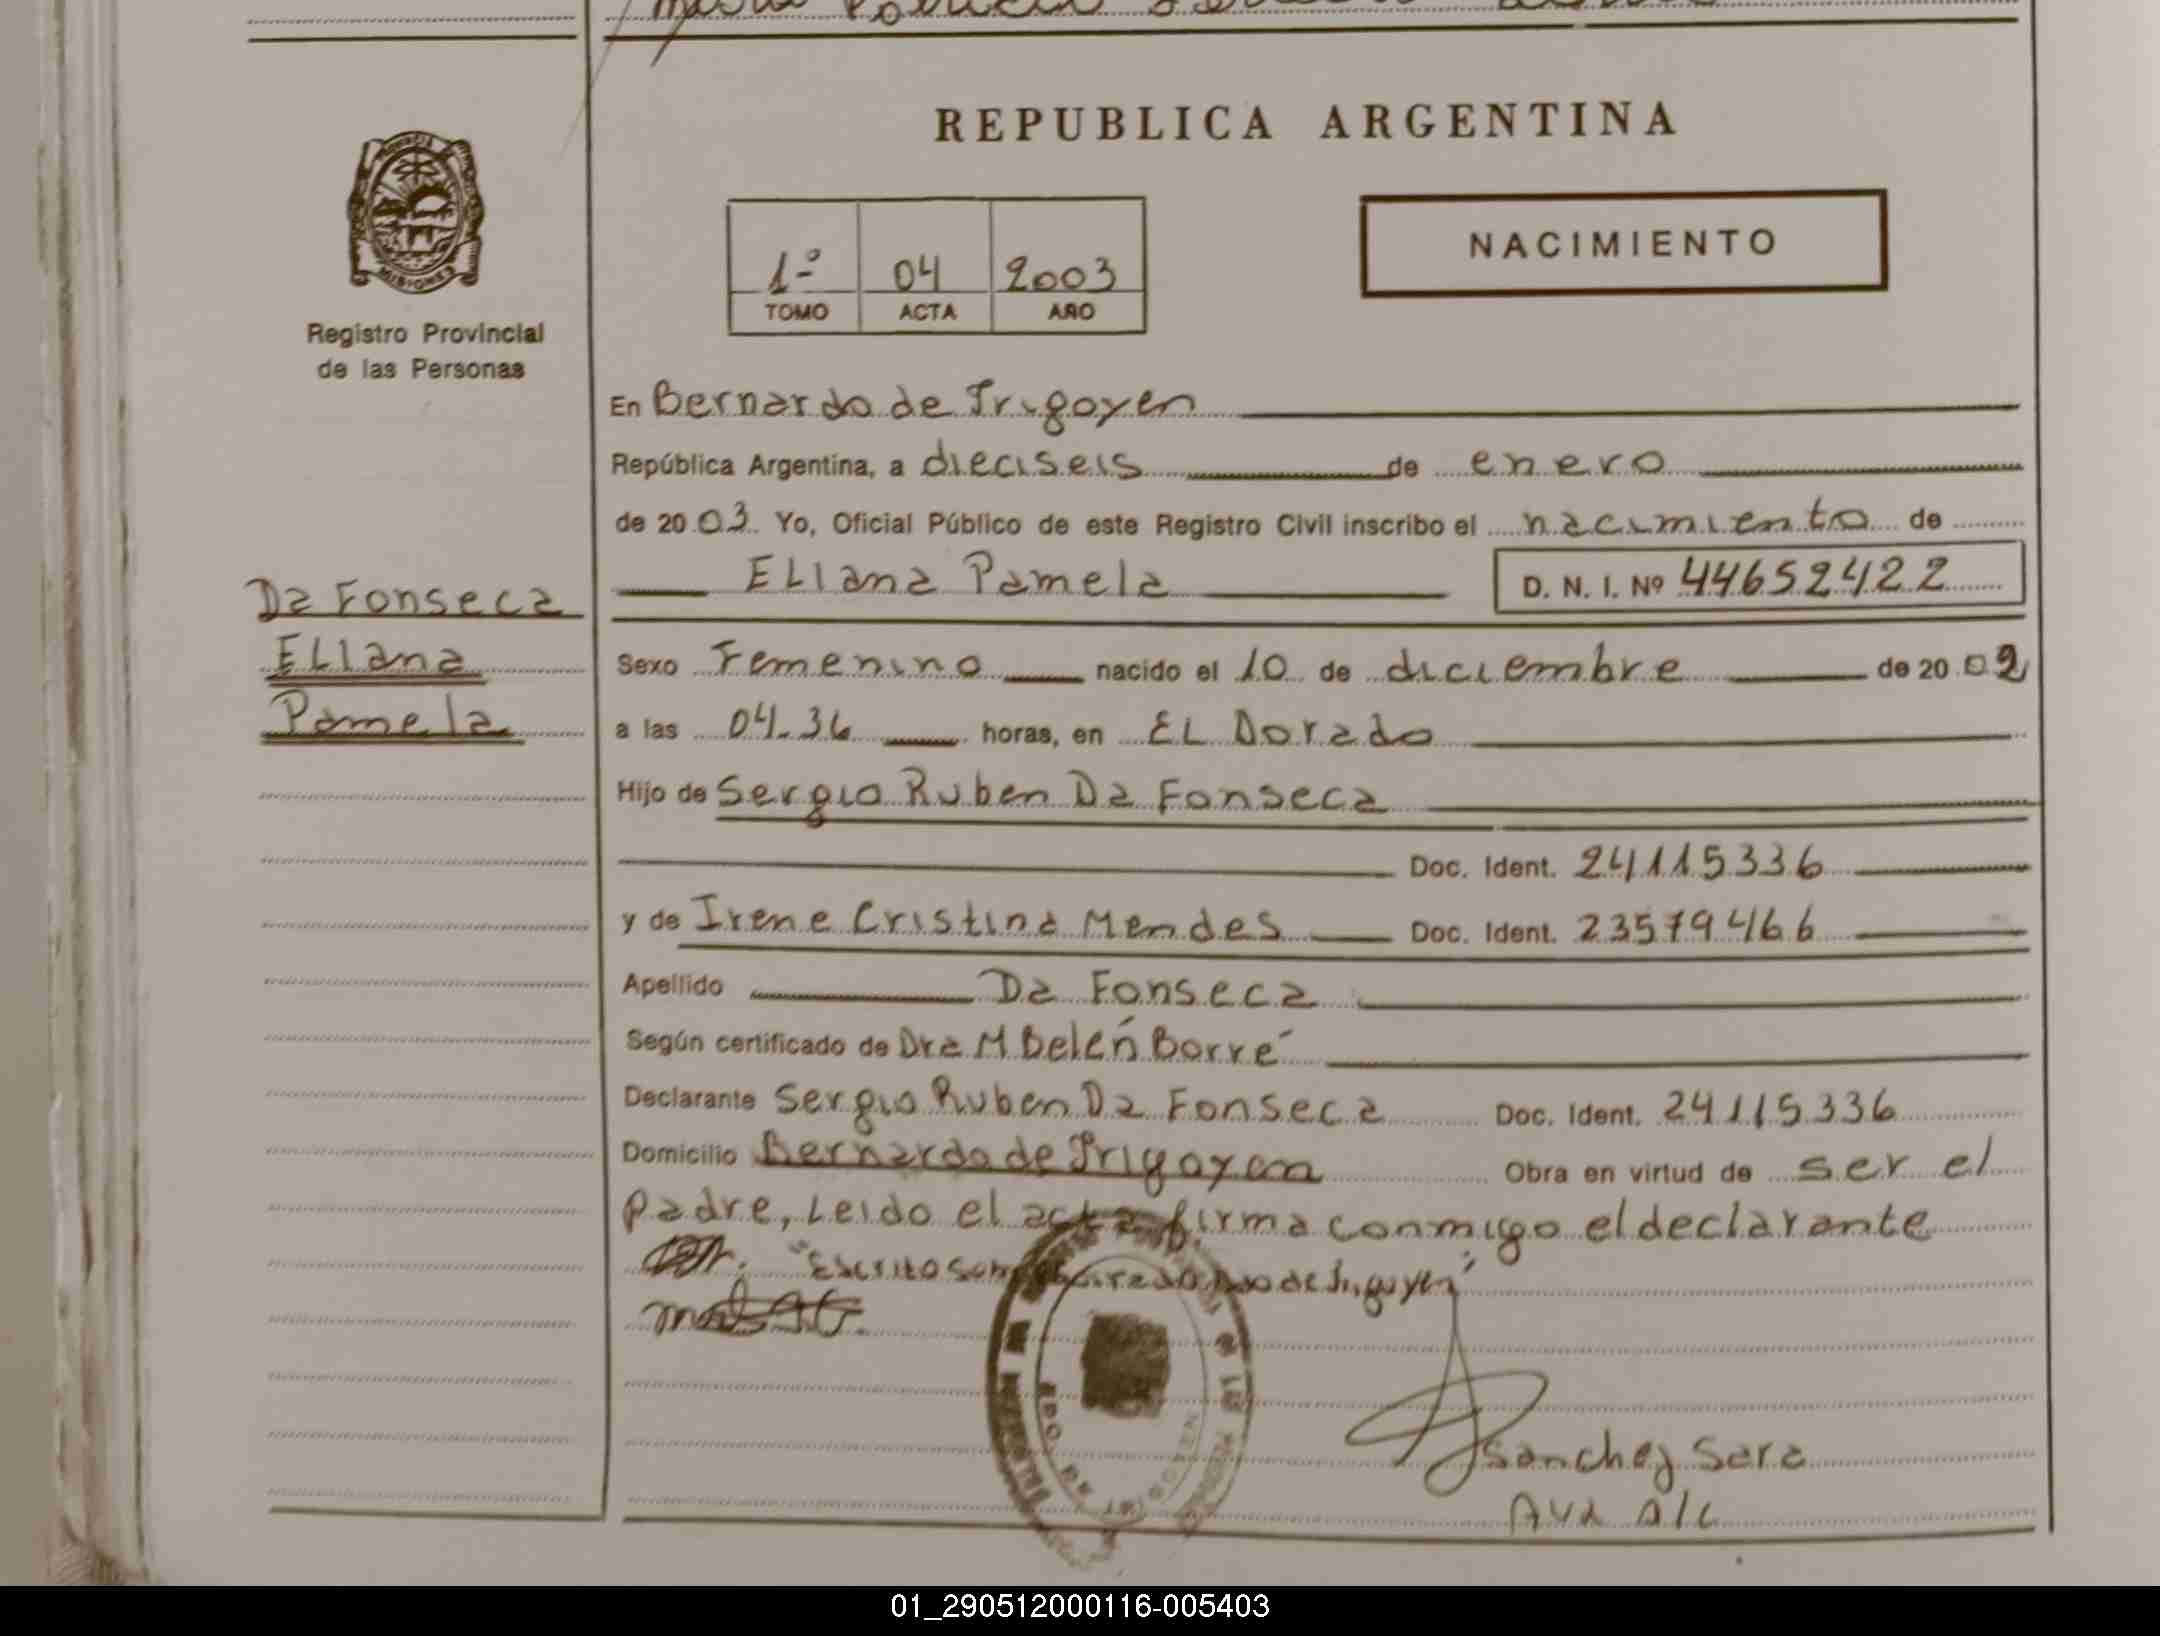 REPUBLICA ARGENTINA
MISIONES
Registro Provincial
de las Personas
1º 04 2003
TOMO ACTA AÑO
NACIMIENTO
En Bernardo de Irigoyen
República Argentina, a dieciseis de enero
de 2003. Yo, Oficial Público de este Registro Civil inscribo el nacimiento de
Eliana Pamela D. N. I. Nº 44652422
Da Fonseca
Eliana
Pamela
Sexo Femenino nacido el 10 de diciembre de 2002
a las 04-36 horas, en El Dorado
Hijo de Sergio Ruben Da Fonseca
Doc. Ident. 24115336
y de Irene Cristina Mendes Doc. Ident. 23579466
Apellido Da Fonseca
Según certificado de Dra M Belén Borré
Declarante Sergio Ruben Da Fonseca Doc. Ident. 24115336
Domicilio Bernardo de Irigoyen Obra en virtud de ser el
padre, Leido el acta firma conmigo el declarante
"Escrito de Irigoyen"
Sanchez Sara
01_290512000116-005403